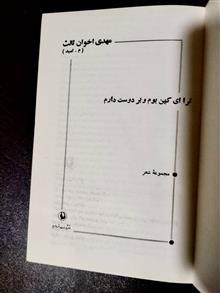 مهدی اخوان ثالث
(م. امید)
ترا ای کهن بوم و بر دوست دارم
مجموعهٔ شعر